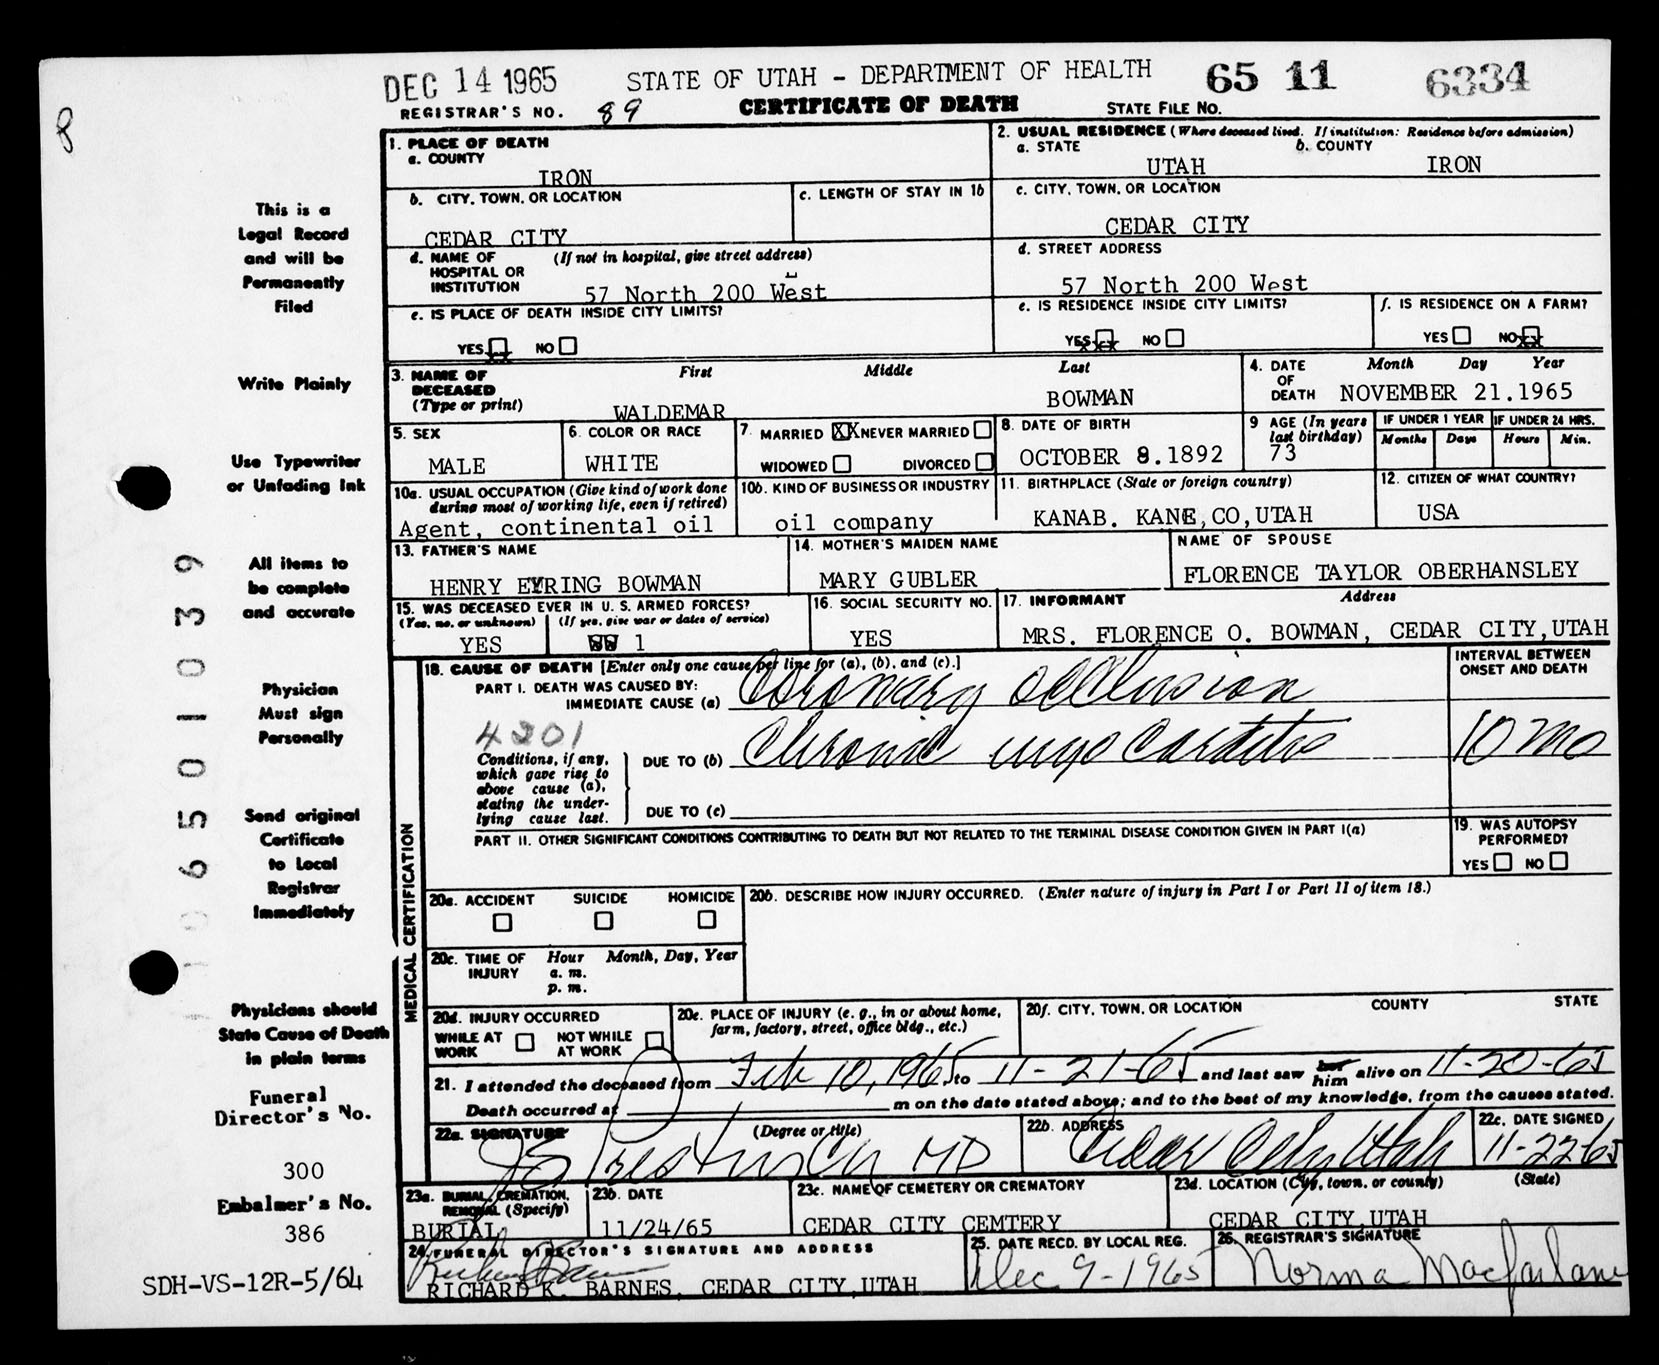 DEC 14 1965 STATE OF UTAH - DEPARTMENT OF HEALTH 65 11 6334
REGISTRAR'S NO. 89 CERTIFICATE OF DEATH STATE FILE NO.
8
1. PLACE OF DEATH
a. COUNTY
IRON
2. USUAL RESIDENCE (Where deceased lived. If institution: Residence before admission)
a. STATE b. COUNTY
UTAH IRON
b. CITY, TOWN, OR LOCATION
CEDAR CITY
c. LENGTH OF STAY IN 1b
c. CITY, TOWN, OR LOCATION
CEDAR CITY
d. NAME OF HOSPITAL OR INSTITUTION (If not in hospital, give street address)
57 North 200 West
d. STREET ADDRESS
57 North 200 West
e. IS PLACE OF DEATH INSIDE CITY LIMITS?
YES XX NO
e. IS RESIDENCE INSIDE CITY LIMITS?
YES XX NO
f. IS RESIDENCE ON A FARM?
YES NO XX
3. NAME OF DECEASED (Type or print)
First Middle Last
WALDEMAR BOWMAN
4. DATE OF DEATH Month Day Year
NOVEMBER 21.1965
5. SEX
MALE
6. COLOR OR RACE
WHITE
7. MARRIED XX NEVER MARRIED
WIDOWED DIVORCED
8. DATE OF BIRTH
OCTOBER 8.1892
9 AGE (In years last birthday)
73
IF UNDER 1 YEAR IF UNDER 24 HRS.
Months Days Hours Min.
10a. USUAL OCCUPATION (Give kind of work done during most of working life, even if retired)
Agent, continental oil
10b. KIND OF BUSINESS OR INDUSTRY
oil company
11. BIRTHPLACE (State or foreign country)
KANAB. KANE,CO,UTAH
12. CITIZEN OF WHAT COUNTRY?
USA
13. FATHER'S NAME
HENRY EYRING BOWMAN
14. MOTHER'S MAIDEN NAME
MARY GUBLER
NAME OF SPOUSE
FLORENCE TAYLOR OBERHANSLEY
15. WAS DECEASED EVER IN U. S. ARMED FORCES?
(Yes, no, or unknown) (If yes, give war or dates of service)
YES WW 1
16. SOCIAL SECURITY NO.
YES
17. INFORMANT Address
MRS. FLORENCE O. BOWMAN, CEDAR CITY,UTAH
MEDICAL CERTIFICATION
18. CAUSE OF DEATH [Enter only one cause per line for (a), (b), and (c).]
INTERVAL BETWEEN ONSET AND DEATH
PART I. DEATH WAS CAUSED BY:
IMMEDIATE CAUSE (a) Coronary occlusion
4201
Conditions, if any, which gave rise to above cause (a), stating the underlying cause last.
DUE TO (b) Chronic myocarditis 10 mo
DUE TO (c)
PART II. OTHER SIGNIFICANT CONDITIONS CONTRIBUTING TO DEATH BUT NOT RELATED TO THE TERMINAL DISEASE CONDITION GIVEN IN PART I(a)
19. WAS AUTOPSY PERFORMED?
YES NO
20a. ACCIDENT SUICIDE HOMICIDE
20b. DESCRIBE HOW INJURY OCCURRED. (Enter nature of injury in Part I or Part II of item 18.)
20c. TIME OF INJURY Hour Month, Day, Year
a. m.
p. m.
20d. INJURY OCCURRED
WHILE AT WORK NOT WHILE AT WORK
20e. PLACE OF INJURY (e. g., in or about home, farm, factory, street, office bldg., etc.)
20f. CITY, TOWN, OR LOCATION COUNTY STATE
21. I attended the deceased from Feb 10, 1965 to 11-21-65 and last saw her him alive on 11-20-65
Death occurred at m on the date stated above; and to the best of my knowledge, from the causes stated.
22a. SIGNATURE (Degree or title)
MD
22b. ADDRESS
Cedar City Utah
22c. DATE SIGNED
11-22-65
23a. BURIAL, CREMATION, REMOVAL (Specify)
BURIAL
23b. DATE
11/24/65
23c. NAME OF CEMETERY OR CREMATORY
CEDAR CITY CEMTERY
23d. LOCATION (City, town, or county) (State)
CEDAR CITY,UTAH
24. FUNERAL DIRECTOR'S SIGNATURE AND ADDRESS
RICHARD K. BARNES, CEDAR CITY,UTAH
25. DATE RECD. BY LOCAL REG.
Dec 9-1965
26. REGISTRAR'S SIGNATURE
Norma Macfarlane
This is a
Legal Record
and will be
Permanently
Filed
Write Plainly
Use Typewriter
or Unfading Ink
All items to
be complete
and accurate
Physician
Must sign
Personally
Send original
Certificate
to Local
Registrar
Immediately
Physicians should
State Cause of Death
in plain terms
Funeral
Director's No.
300
Embalmer's No.
386
SDH-VS-12R-5/64
0650101039